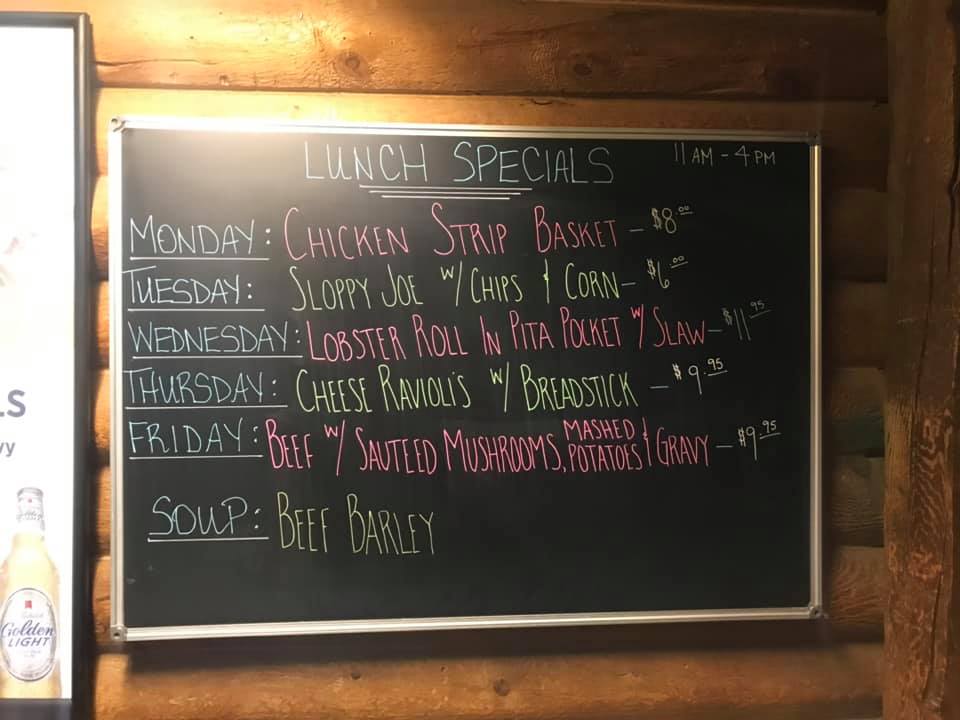 LUNCH SPECIALS 11 AM - 4 PM
MONDAY: CHICKEN STRIP BASKET - $8.00
TUESDAY: SLOPPY JOE W/ CHIPS & CORN - $6.00
WEDNESDAY: LOBSTER ROLL IN PITA POCKET W/ SLAW - $11.95
THURSDAY: CHEESE RAVIOLI'S W/ BREADSTICK - $9.95
FRIDAY: BEEF W/ SAUTEED MUSHROOMS, MASHED POTATOES & GRAVY - $9.95
SOUP: BEEF BARLEY
LS
vy
Golden
LIGHT